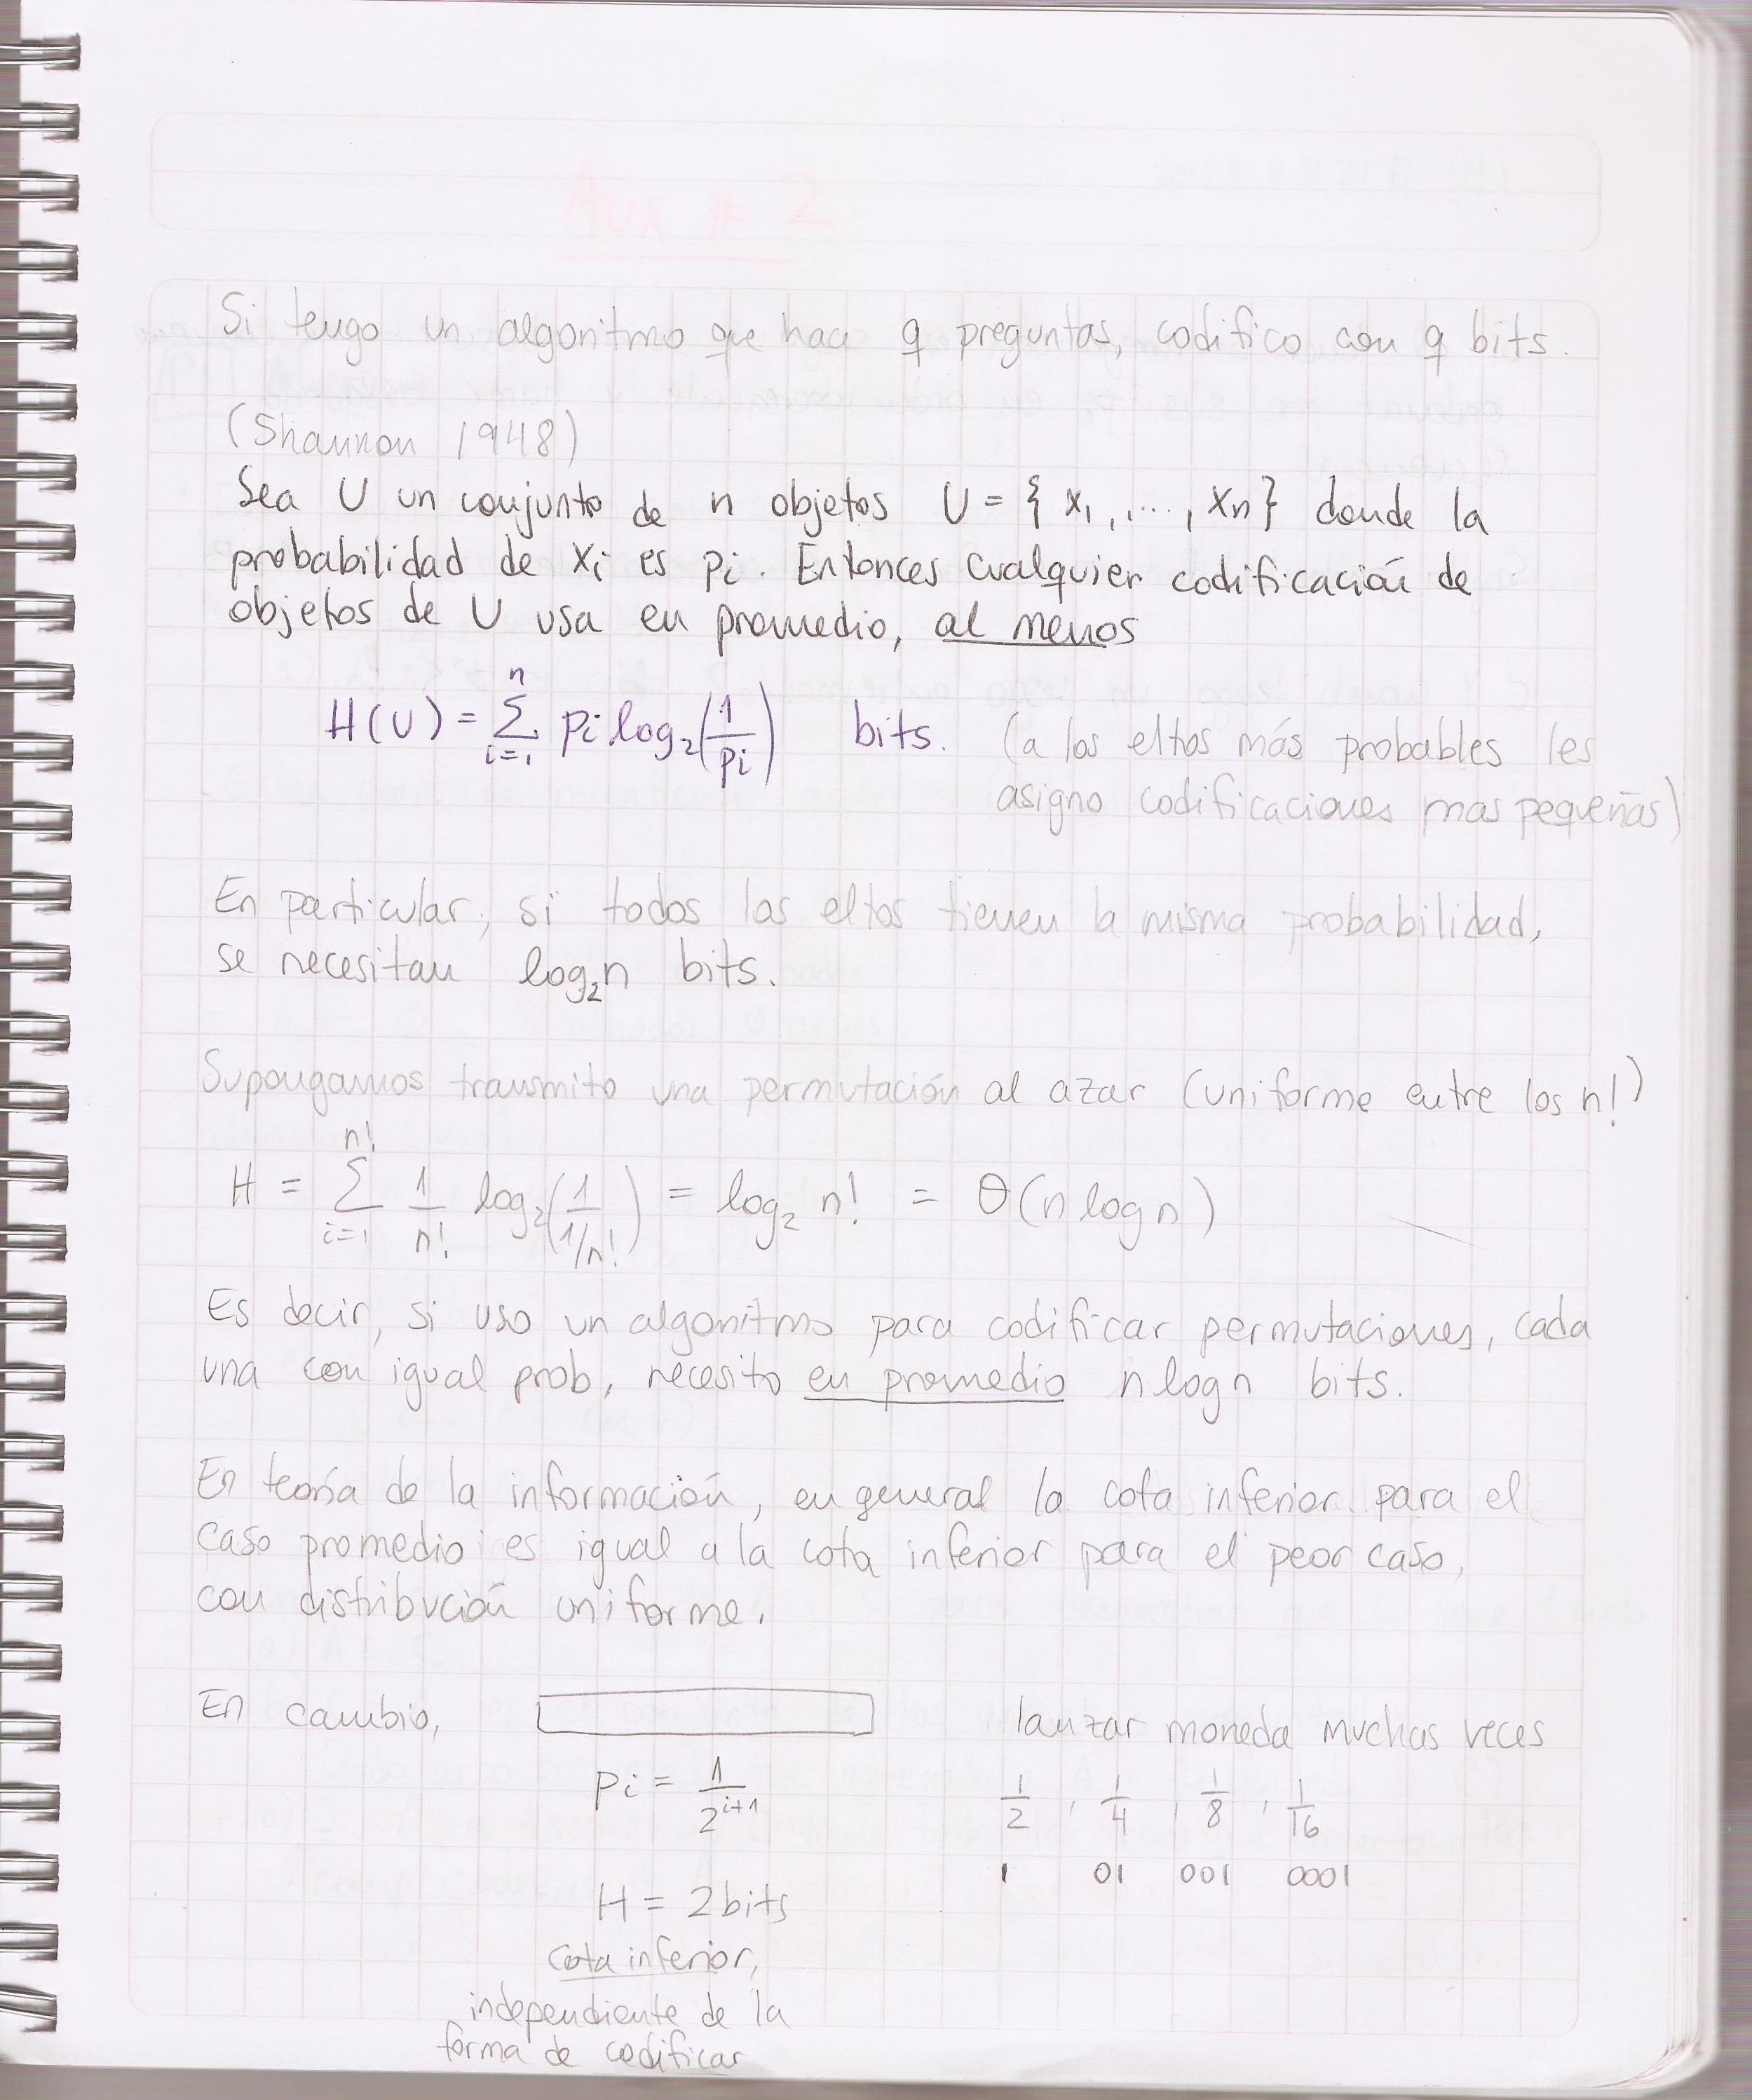 Aux # 2
Si tengo un algoritmo que hace q preguntas, codifico con q bits.
(Shannon 1948)
Sea U un conjunto de n objetos U = { x₁, ..., xn } donde la
probabilidad de xi es pi. Entonces cualquier codificación de
objetos de U usa en promedio, al menos
H(U) = Σ_{i=1}^{n} pi log₂(1/pi) bits. (a los eltos más probables les
asigno codificaciones mas pequeñas)
En particular, si todos los eltos tienen la misma probabilidad,
se necesitan log₂n bits.
Supongamos transmito una permutación al azar (uniforme entre los n!)
H = Σ_{i=1}^{n!} 1/n! log₂(1/(1/n!)) = log₂ n! = Θ(n log n)
Es decir, si uso un algoritmo para codificar permutaciones, cada
una con igual prob, necesito en promedio n log n bits.
En teoría de la información, en general la cota inferior para el
caso promedio es igual a la cota inferior para el peor caso,
con distribución uniforme.
En cambio, lanzar moneda muchas veces
pi = 1/2^{i+1} 1/2, 1/4, 1/8, 1/16
1 01 001 0001
H = 2 bits
cota inferior,
independiente de la
forma de codificar